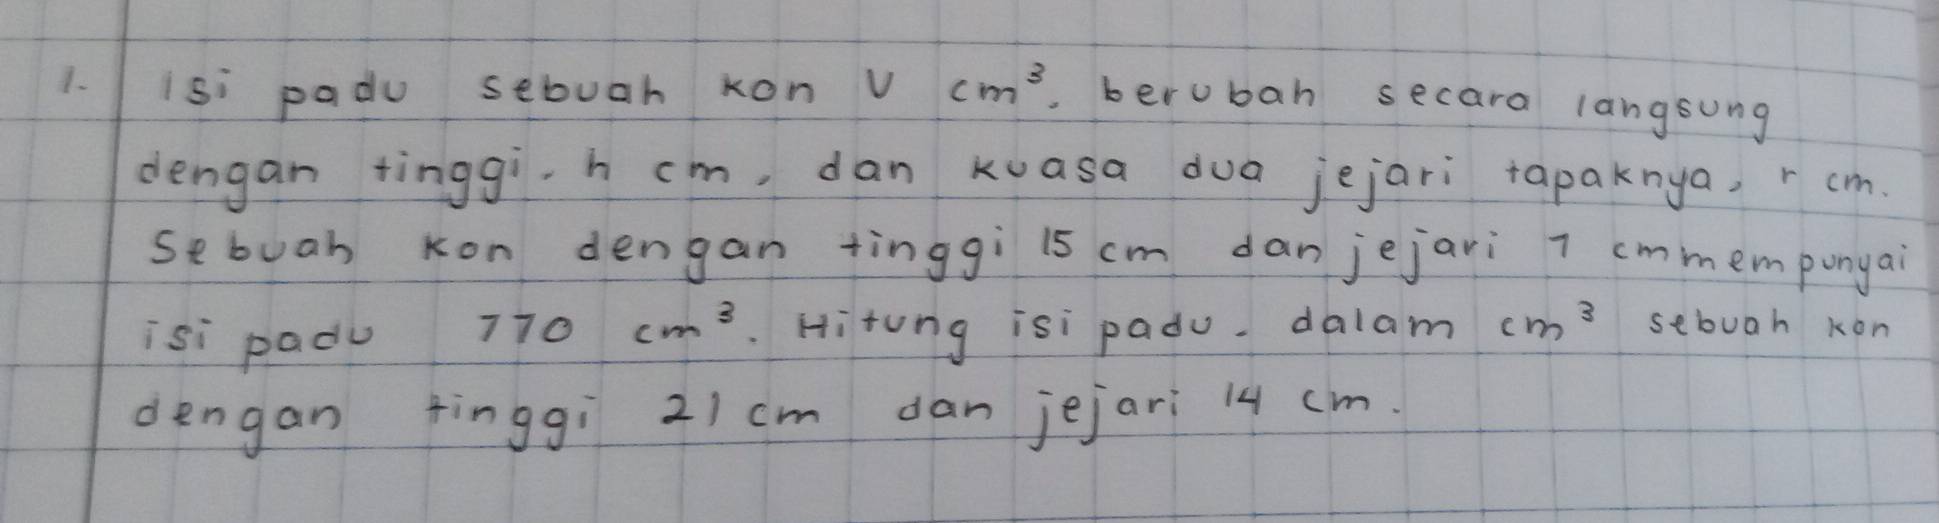 1. Isi padu sebuah kon V cm³, berubah secara langsung
dengan tinggi, h cm, dan kuasa dua jejari tapaknya, r cm.
Sebuah kon dengan tinggi 15 cm dan jejari 7 cm mempunyai
isi padu 770 cm³. Hitung isi padu, dalam cm³ sebuah kon
dengan tinggi 21 cm dan jejari 14 cm.